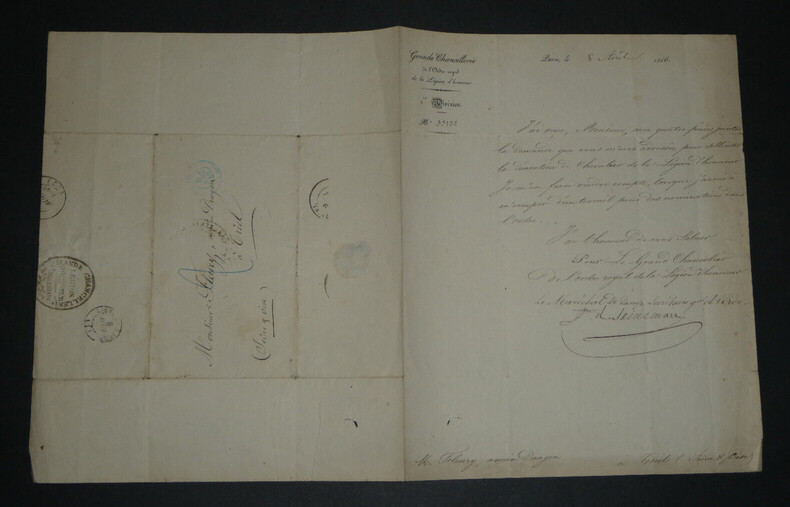 Grande Chancellerie
de l'Ordre royal
de la Légion d'honneur
Division
N°
Paris, le 8 Août 1846.
J'ai reçu, Monsieur, avec pièces jointes
la demande que vous m'avez adressée pour obtenir
la décoration de Chevalier de la Légion d'honneur
Je m'en ferai rendre compte, lorsque j'aurai à
m'occuper d'un travail pour des nominations dans
l'ordre.
J'ai l'honneur de vous saluer
Pour le Grand Chancelier
de l'ordre royal de la Légion d'honneur
le Maréchal de Camp Secrétaire
M. Fleury, ancien Dragon
à Triel (Seine & Oise)
Monsieur Fleury, ancien Dragon
à Triel
(Seine & Oise)